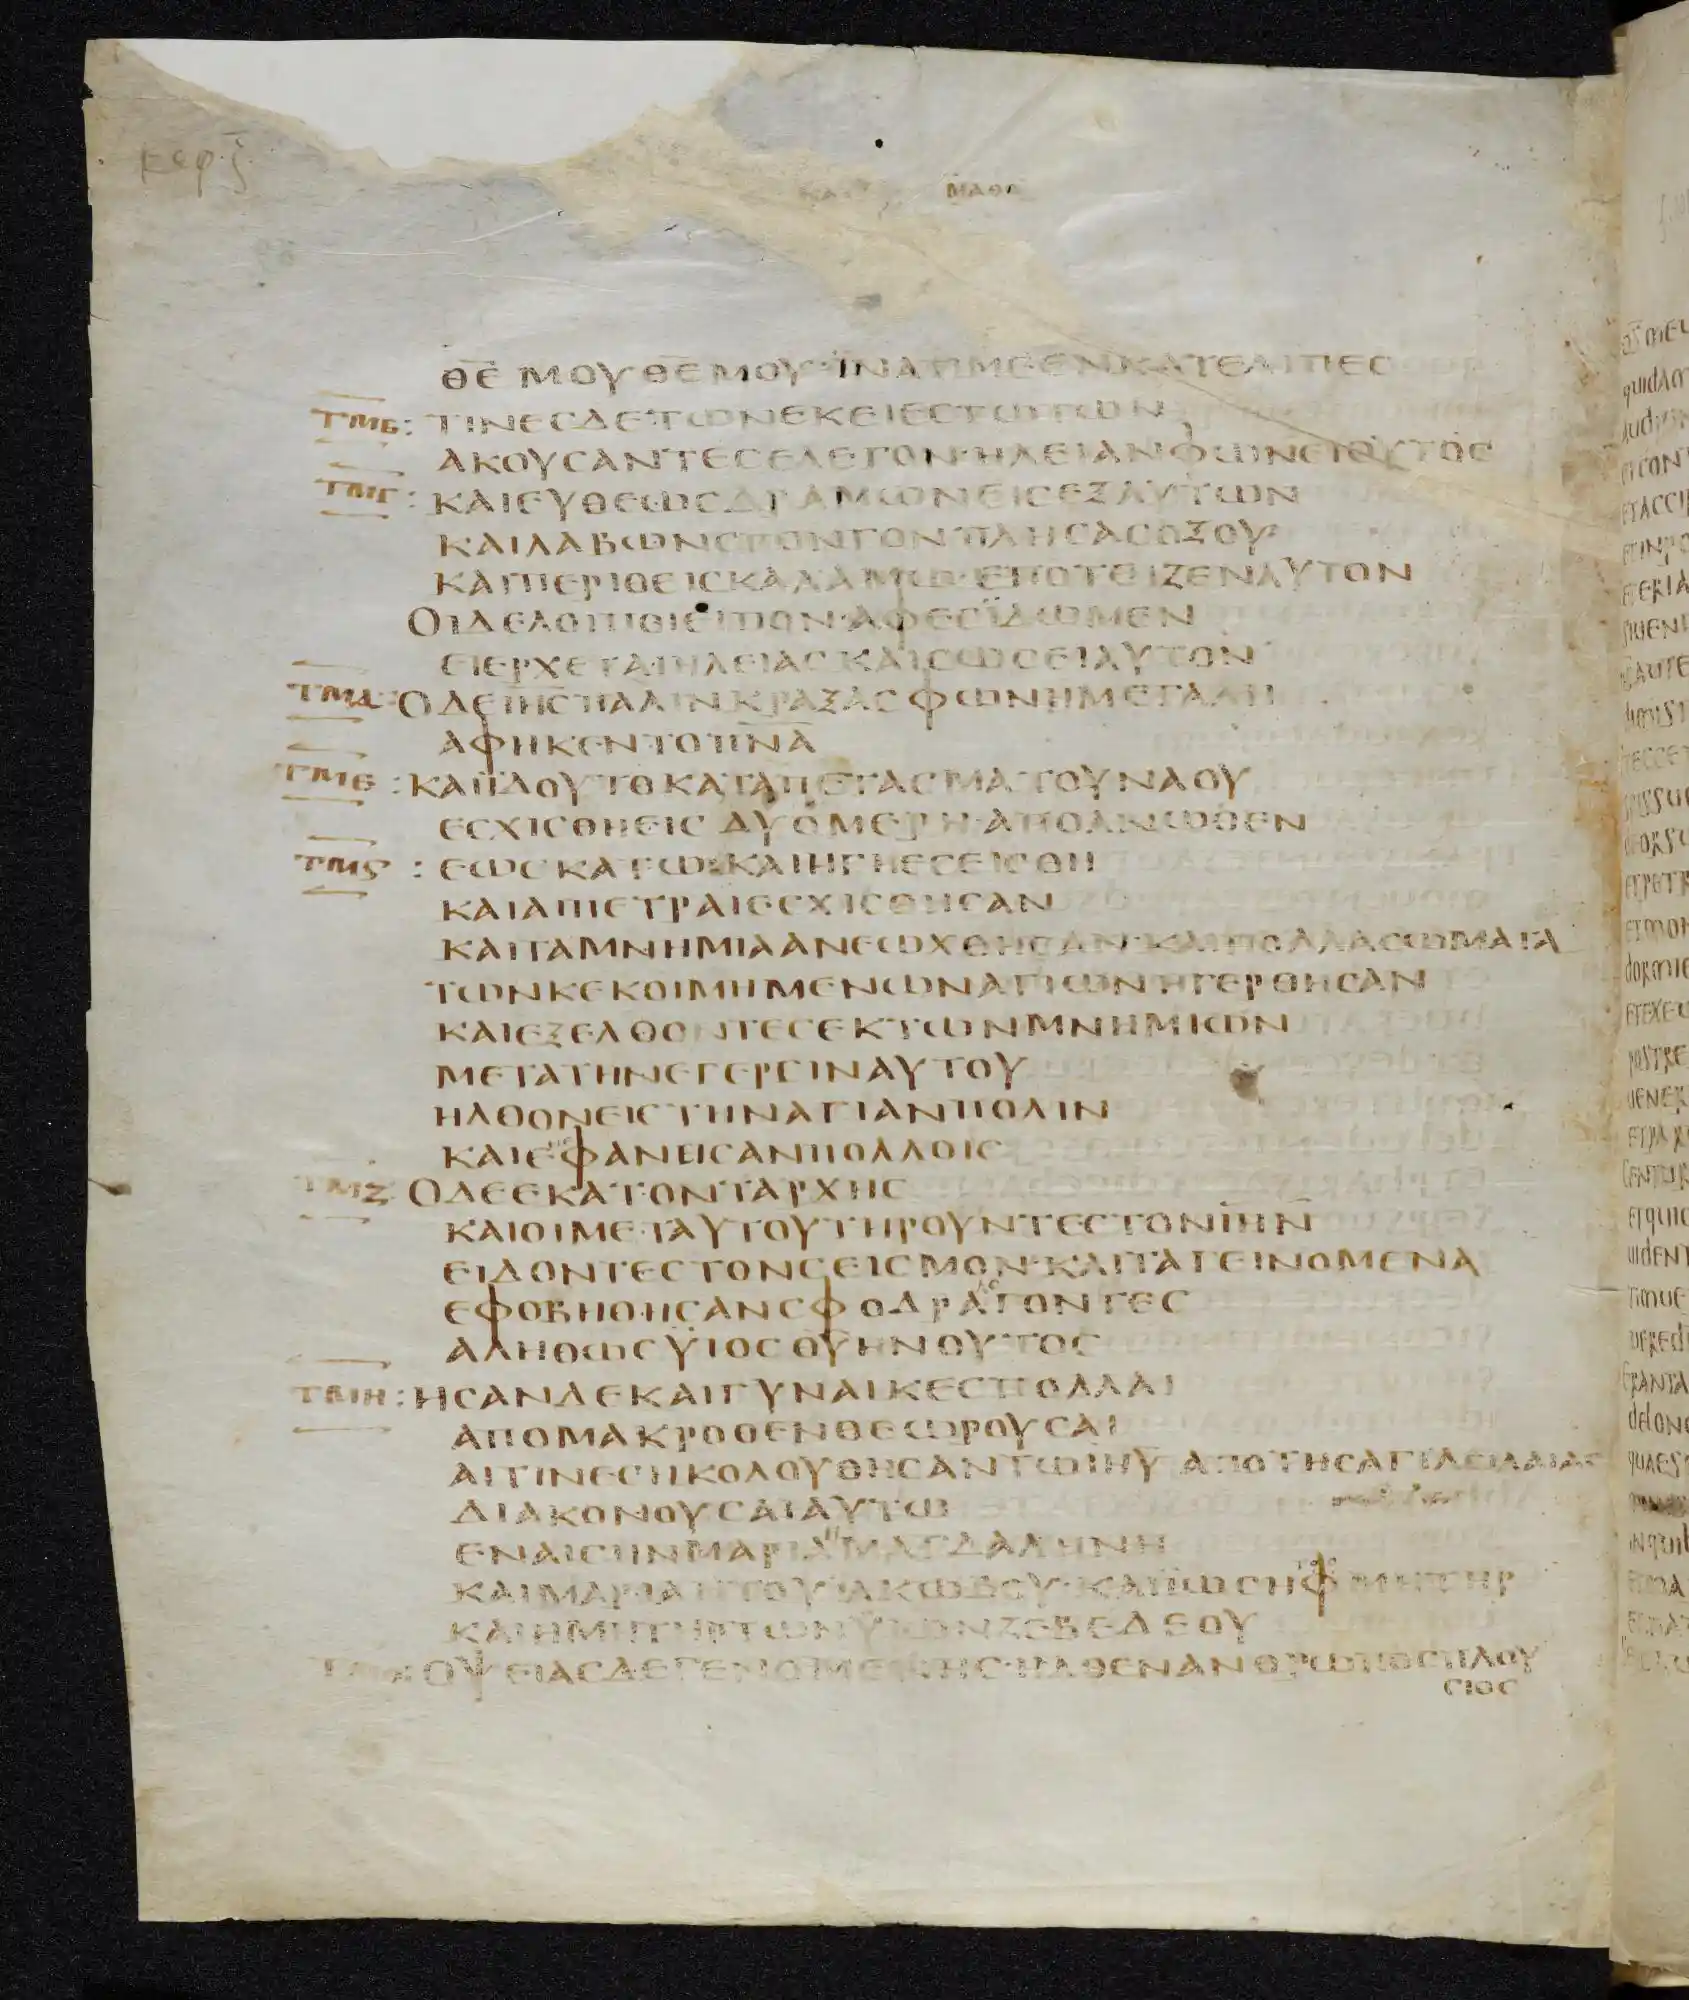 κεφ ξ
ΚΑΤ ΜΑΘΘ
ΘΕ̅ ΜΟΥ ΘΕ̅ ΜΟΥ· ΪΝΑΤΙΜΕΕΝΚΑΤΕΛΙΠΕС
ΤΜΒ : ΤΙΝΕСΔΕΤΩΝΕΚΕΙΕСΤΩΤΩΝ
ΑΚΟΥСΑΝΤΕСΕΛΕΓΟΝ·ΗΛΕΙΑΝΦΩΝΕΙΟΥΤΟС
ΤΜΓ : ΚΑΙΕΥΘΕΩСΔΡΑΜΩΝΕΙСΕΞΑΥΤΩΝ
ΚΑΙΛΑΒΩΝСΠΟΝΓΟΝΠΛΗСΑСΟΞΟΥС
ΚΑΙΠΕΡΙΘΕΙСΚΑΛΑΜΩ·ΕΠΟΤΕΙΖΕΝΑΥΤΟΝ
ΟΙΔΕΛΟΙΠΟΙΕΙΠΟΝ·ΑΦΕСΪΔΩΜΕΝ
ΕΙΕΡΧΕΤΑΙΗΛΕΙΑСΚΑΙСΩСΕΙΑΥΤΟΝ
ΤΜΔ : ΟΔΕΙ̅Η̅С̅ΠΑΛΙΝΚΡΑΞΑСΦΩΝΗΜΕΓΑΛΗ
ΑΦΗΚΕΝΤΟΠ̅Ν̅Α̅
ΤΜΕ : ΚΑΙΪΔΟΥΤΟΚΑΤΑΠΕΤΑСΜΑΤΟΥΝΑΟΥ
ΕСΧΙСΘΗΕΙСΔΥΟΜΕΡΗ·ΑΠΟΑΝΩΘΕΝ
ΤΜϚ : ΕΩСΚΑΤΩ·ΚΑΙΗΓΗΕСΕΙСΘΗ
ΚΑΙΑΙΠΕΤΡΑΙΕСΧΙСΘΗСΑΝ
ΚΑΙΤΑΜΝΗΜΙΑΑΝΕΩΧΘΗСΑΝ·ΚΑΙΠΟΛΛΑСΩΜΑΤΑ
ΤΩΝΚΕΚΟΙΜΗΜΕΝΩΝΑΓΙΩΝΗΓΕΡΘΗСΑΝ
ΚΑΙΕΞΕΛΘΟΝΤΕСΕΚΤΩΝΜΝΗΜΙΩΝ
ΜΕΤΑΤΗΝΕΓΕΡСΙΝΑΥΤΟΥ
ΗΛΘΟΝΕΙСΤΗΝΑΓΙΑΝΠΟΛΙΝ
ΚΑΙΕΦΑΝΕΙСΑΝΠΟΛΛΟΙС
ΤΜΖ : ΟΔΕΕΚΑΤΟΝΤΑΡΧΗС
ΚΑΙΟΙΜΕΤΑΥΤΟΥΤΗΡΟΥΝΤΕСΤΟΝΙ̅Η̅Ν̅
ΕΙΔΟΝΤΕСΤΟΝСΕΙСΜΟΝ·ΚΑΙΤΑΓΕΙΝΟΜΕΝΑ
ΕΦΟΒΗΘΗСΑΝСΦΟΔΡΑΛΕΓΟΝΤΕС
ΑΛΗΘΩСΫΙΟСΘ̅Υ̅ΗΝΟΥΤΟС
ΤΜΗ : ΗСΑΝΔΕΚΑΙΓΥΝΑΙΚΕСΠΟΛΛΑΙ
ΑΠΟΜΑΚΡΟΘΕΝΘΕΩΡΟΥСΑΙ
ΑΙΤΙΝΕСΗΚΟΛΟΥΘΗСΑΝΤΩΙ̅Η̅Υ̅ΑΠΟΤΗСΓΑΛΕΙΛΑΙΑС
ΔΙΑΚΟΝΟΥСΑΙΑΥΤΩ
ΕΝΑΙСΗΝΜΑΡΙΑΗΜΑΓΔΑΛΗΝΗ
ΚΑΙΜΑΡΙΑΗΤΟΥΪΑΚΩΒΟΥ·ΚΑΙΪΩСΗΦΜΗΤΗΡ
ΚΑΙΗΜΗΤΗΡΤΩΝΫΙΩΝΖΕΒΕΔΕΟΥ
ΟΨΕΙΑСΔΕΓΕΝΟΜΕΝΗС·ΗΛΘΕΝΑΝΘΡΩΠΟСΠΛΟΥ
СΙΟС